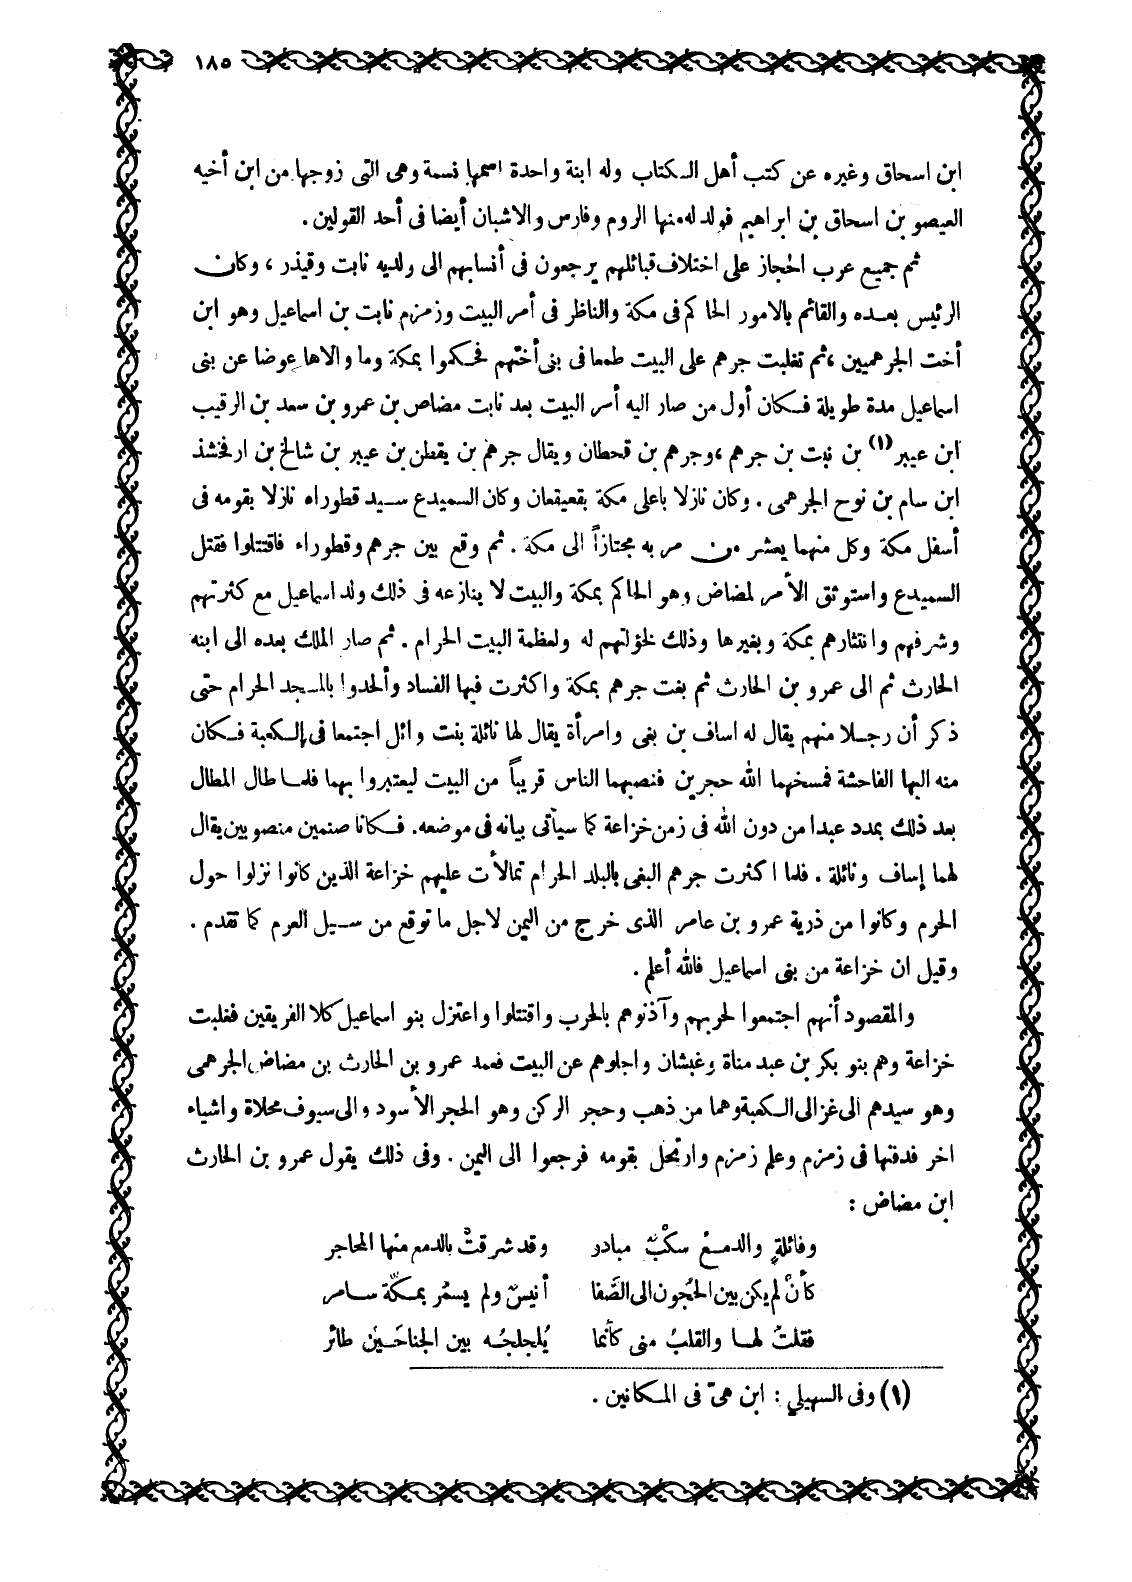 ١٨٥
ابن اسحاق وغيره عن كتب أهل الكتاب وله ابنة واحدة اسمها نسمة وهى التى زوجها من ابن أخيه
العيصو بن اسحاق بن ابراهيم فولد له منها الروم وفارس والاشبان أيضا فى أحد القولين .
ثم جميع عرب الحجاز على اختلاف قبائلهم يرجعون فى أنسابهم الى ولديه نابت وقيذر ، وكان
الرئيس بعده والقائم بالامور الحاكم فى مكة والناظر فى أمر البيت وزمزم نابت بن اسماعيل وهو ابن
أخت الجرهميين ، ثم تغلبت جرهم على البيت طمعا فى بنى أختهم فحكموا بمكة وما والاها عوضا عن بنى
اسماعيل مدة طويلة فكان أول من صار اليه أمر البيت بعد نابت مضاض بن عمرو بن سعد بن الرقيب
ابن عيبر (١) بن نبت بن جرهم ، وجرهم بن قحطان ويقال جرهم بن يقطن بن عيبر بن شالخ بن ارفخشذ
ابن سام بن نوح الجرهمى . وكان نازلا باعلى مكة بقعيقعان وكان السميدع سيد قطوراء نازلا بقومه فى
أسفل مكة وكل منهما يعشر من مر به مجتازاً الى مكة . ثم وقع بين جرهم وقطوراء فاقتتلوا فقتل
السميدع واستوثق الأمر لمضاض وهو الحاكم بمكة والبيت لا ينازعه فى ذلك ولد اسماعيل مع كثرتهم
وشرفهم وانتثارهم بمكة وبغيرها وذلك لخؤلتهم له ولعظمة البيت الحرام . ثم صار الملك بعده الى ابنه
الحارث ثم الى عمرو بن الحارث ثم بغت جرهم بمكة واكثرت فيها الفساد وألحدوا بالمسجد الحرام حتى
ذكر أن رجلا منهم يقال له اساف بن بغى وامرأة يقال لها نائلة بنت وائل اجتمعا فى الكعبة فكان
منه اليها الفاحشة فمسخهما الله حجرين فنصبهما الناس قريباً من البيت ليعتبروا بهما فلما طال المطال
بعد ذلك بمدد عبدا من دون الله فى زمن خزاعة كما سيأتى بيانه فى موضعه. فكانا صنمين منصوبين يقال
لهما إساف ونائلة . فلما اكثرت جرهم البغى بالبلد الحرام تمالأت عليهم خزاعة الذين كانوا نزلوا حول
الحرم وكانوا من ذرية عمرو بن عامر الذى خرج من اليمن لاجل ما توقع من سيل العرم كما تقدم .
وقيل ان خزاعة من بنى اسماعيل فالله أعلم .
والمقصود أنهم اجتمعوا لحربهم وآذنوهم بالحرب واقتتلوا واعتزل بنو اسماعيل كلا الفريقين فغلبت
خزاعة وهم بنو بكر بن عبد مناة وغبشان واجلوهم عن البيت فعمد عمرو بن الحارث بن مضاض الجرهمى
وهو سيدهم الى غزالى الكعبة وهما من ذهب وحجر الركن وهو الحجر الأسود والى سيوف محلاة واشياء
اخر فدفنها فى زمزم وعلم زمزم وارتحل بقومه فرجعوا الى اليمن . وفى ذلك يقول عمرو بن الحارث
ابن مضاض :
وقائلةٍ والدمعُ سكْبٌ مبادر وقد شرقتْ بالدمع منها المحاجر
كأنْ لم يكن بين الحُجون الى الصَّفا أنيسٌ ولم يسمُر بمكّة سامر
فقلتُ لها والقلبُ منى كأنما يُلجلجُه بين الجناحَين طائر
(١) وفى السهيلي : ابن هىّ فى المكانين .